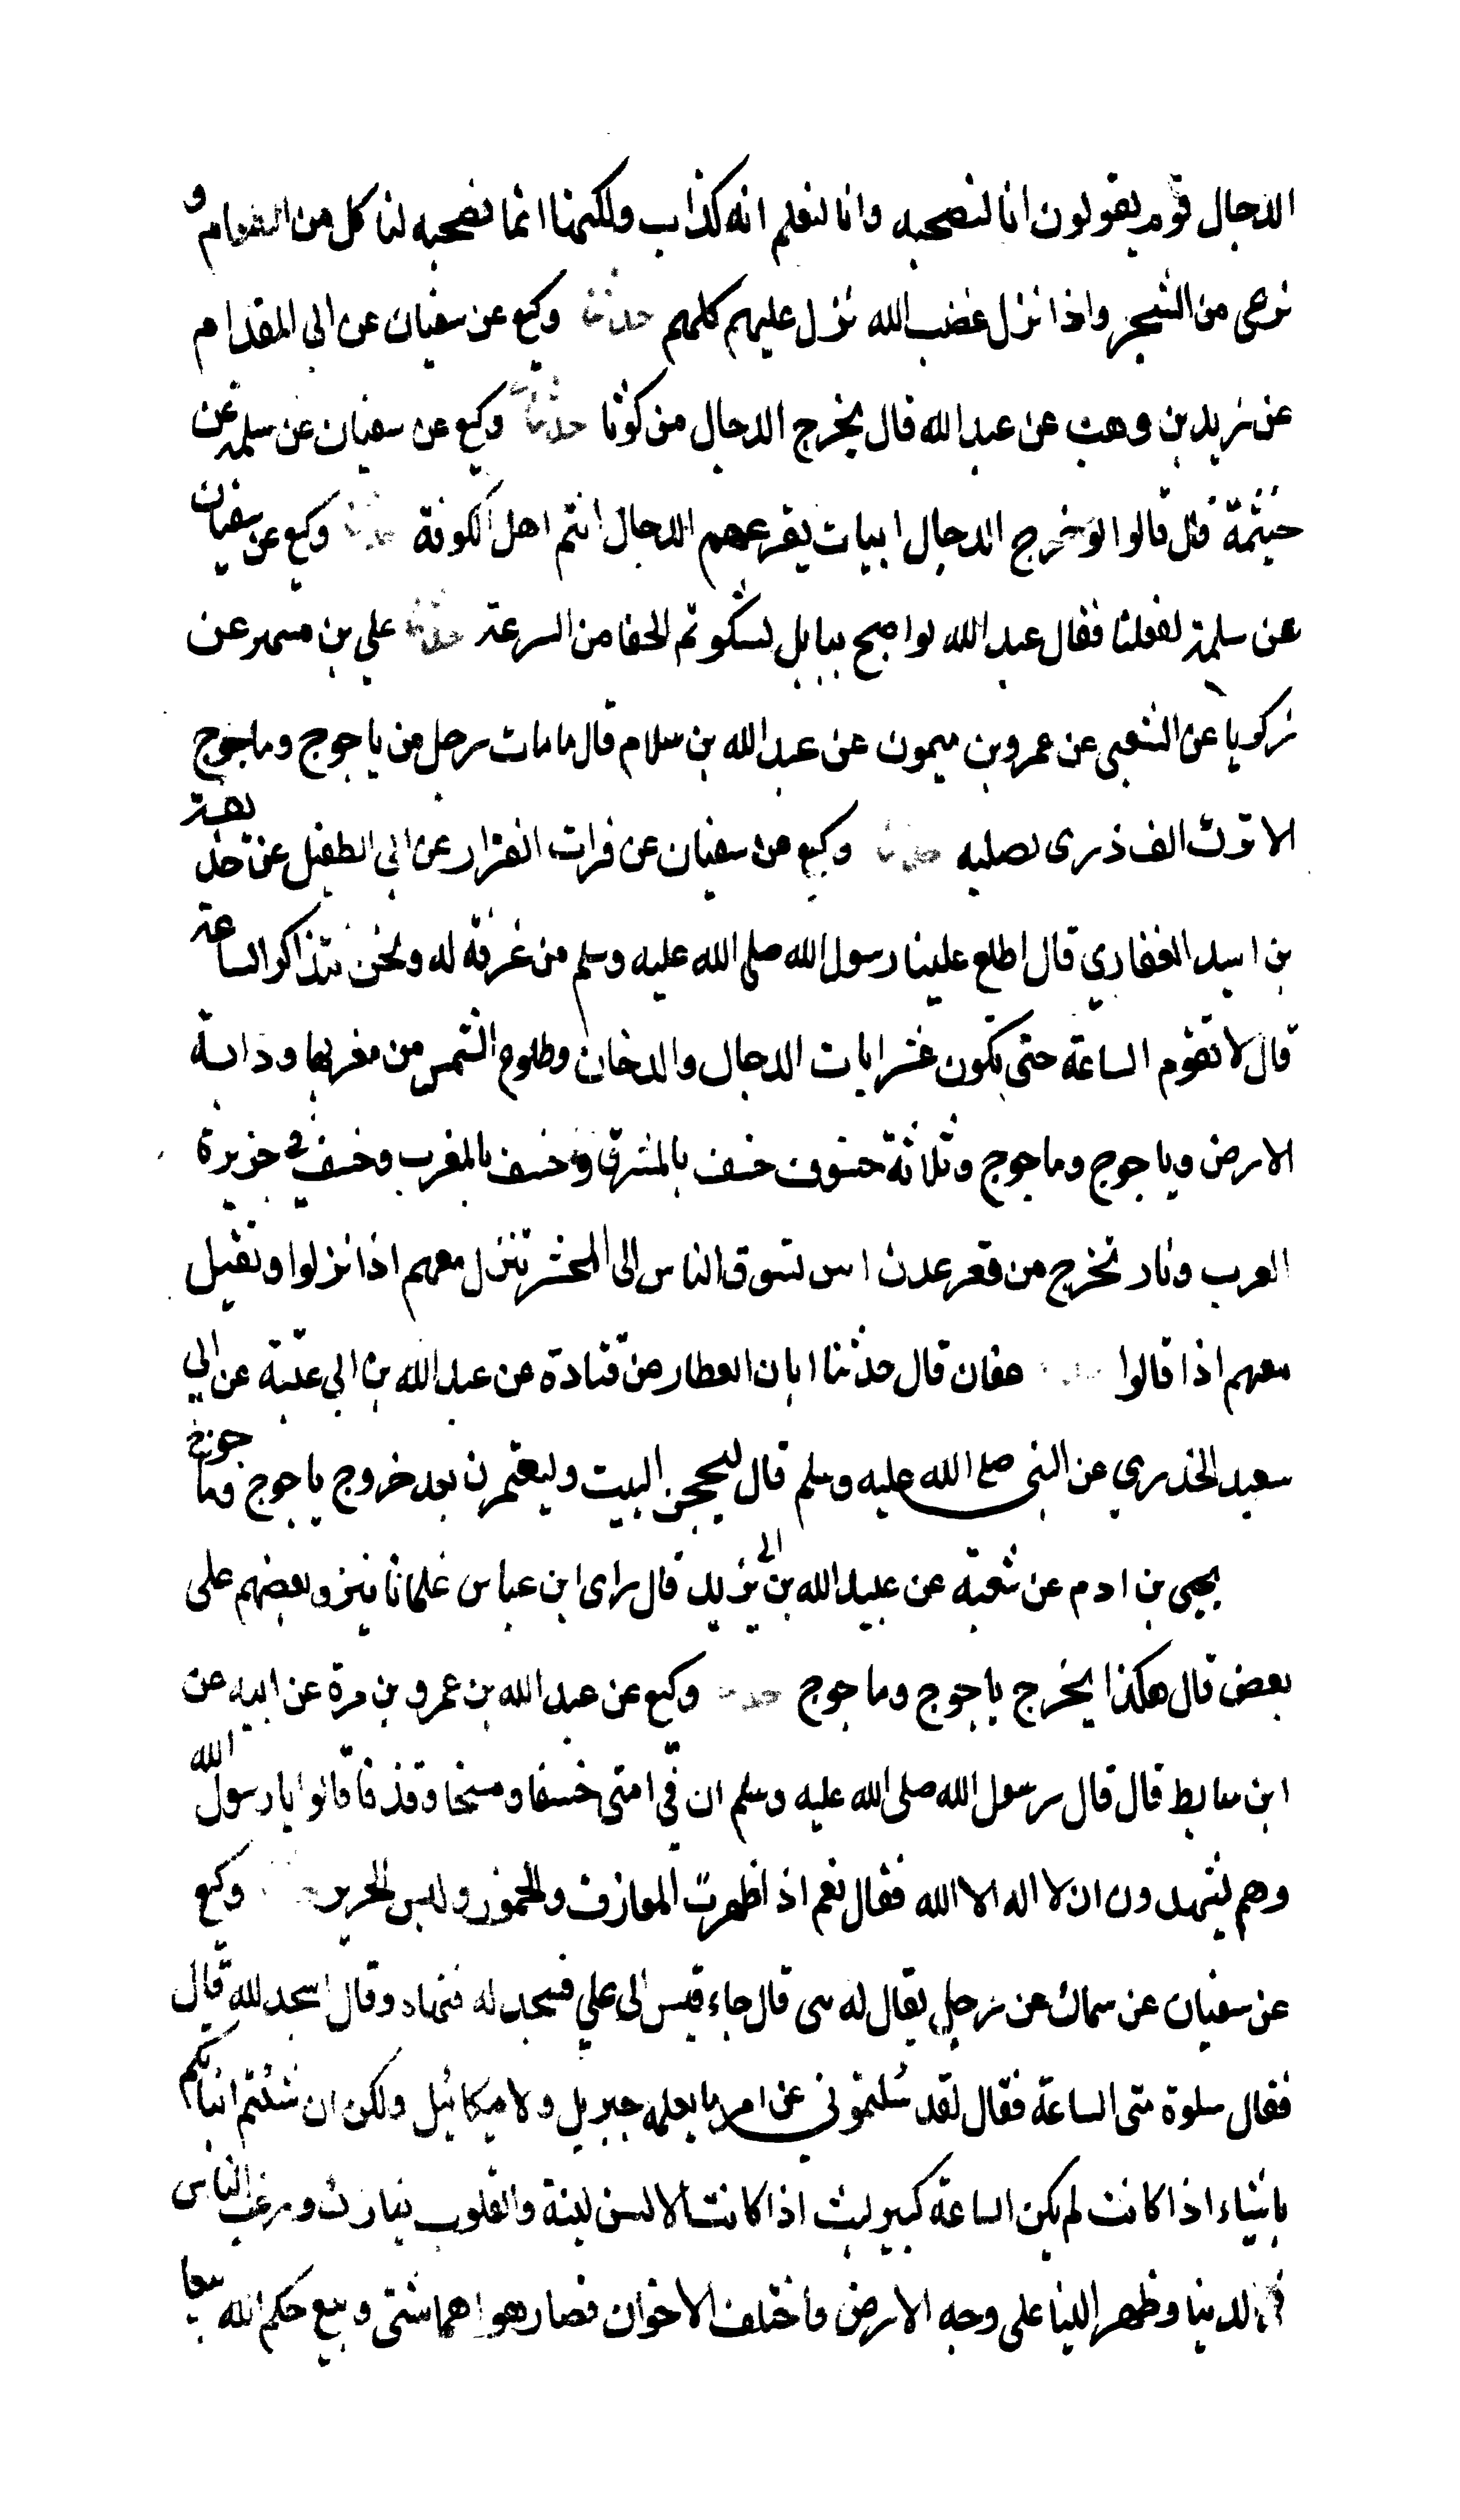 الدجال قوم يقولون انا لنصحبه وانا لنعلم انه كذاب ولكنهنا انما نصحبه لنا كل من الطعام و
نرعى من الشجر واذا نزل غضب الله نزل عليهم كلهم حدثنا وكيع عن سفيان عن ابي المقدام
عن زيد بن وهب عن عبد الله قال يخرج الدجال من كوثا حدثنا وكيع عن سفيان عن سلمة عن
خيثمة قال قالوا لو خرج الدجال ابيات يقرعهم الدجال انتم اهل الكوفة حدثنا وكيع عن سفيان
عن سلمة لفعلنا فقال عبد الله لو اصبح ببابل لشكوتم الحفا من السرعة حدثنا علي بن مسهر عن
زكويا عن الشعبي عن عمرو بن ميمون عن عبد الله بن سلام قال ما مات رجل من ياجوج وماجوج
الا ترك الف ذرى لصلبه حدثنا وكيع عن سفيان عن فرات القزار عن ابي الطفيل عن حذيفة
بن اسيد الغفاري قال اطلع علينا رسول الله صلى الله عليه وسلم من غرفة له ونحن نتذاكر الساعة
قال لا تقوم الساعة حتى يكون عشر ايات الدجال والدخان وطلوع الشمس من مغربها ودابة
الارض وياجوج وماجوج وثلاثة خسوف خسف بالمشرق وخسف بالمغرب وخسف في جزيرة
العرب ونار تخرج من قعر عدن ابين تسوق الناس الى المحشر تنزل معهم اذا نزلوا وتقيل
معهم اذا قالوا حدثنا عفان قال حدثنا ابان العطار عن قتادة عن عبد الله بن ابي عتبة عن ابي
سعيد الخدري عن النبي صلى الله عليه وسلم قال ليحجن البيت وليعتمرن بعد خروج ياجوج وماجوج
يحيى بن ادم عن شعبة عن عبيد الله بن ابي يزيد قال راى ابن عباس غلمانا ينزو بعضهم على
بعض قال هكذا يخرج ياجوج وماجوج حدثنا وكيع عن عبد الله بن عمرو بن مرة عن ابيه عن
ابن سابط قال قال رسول الله صلى الله عليه وسلم ان في امتي خسفا ومسخا وقذفا قالوا يا رسول الله
وهم يشهدون ان لا اله الا الله فقال نعم اذا ظهرت المعازف والخمور ولبس الحرير حدثنا وكيع
عن سفيان عن سماك عن رجل يقال له قال جاء قيس الى علي فسجد له فنهاه وقال اسجد لله قال
فقال سلوة متى الساعة فقال لقد سئلتموني عن امر ما يعلمه جبريل ولا ميكائيل ولكن ان شئتم انباتكم
باشياء اذا كانت لم يكن الساعة كبير لبث اذا كانت الالسن لينة والقلوب نيازك ورغب الناس
في الدنيا وظهر البنا على وجه الارض واختلف الاخوان فصار هواهما شتى وبيع حكم الله بيعا